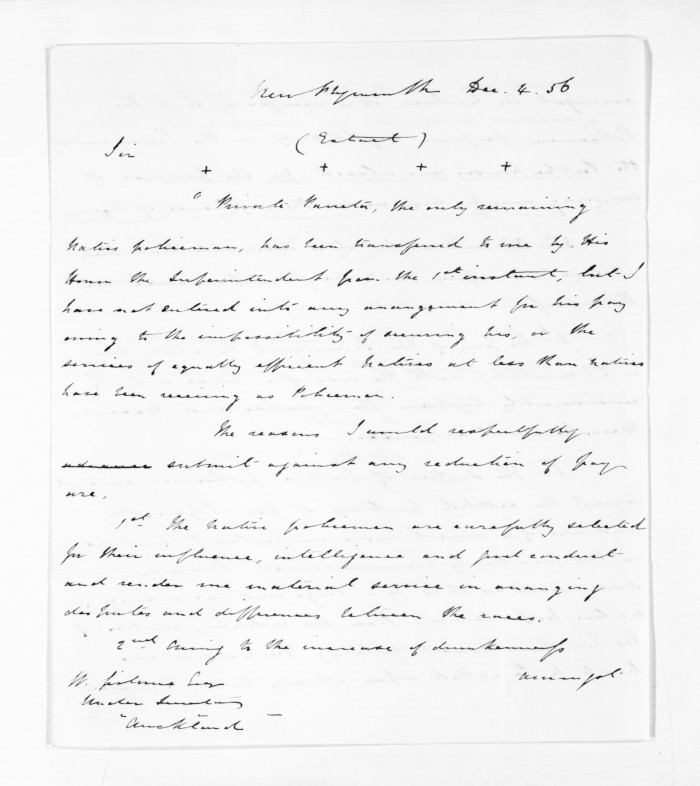 New Plymouth Dec. 4. 56
(Extract)
Sir
+ + + +
" Private Taneta, the only remaining
Native policeman, has been transferred to me by His
Honor the Superintendent from the 1st instant, but I
have not entered into any arrangement for his pay
owing to the impossibility of securing his, or the
services of equally efficient Natives at less than natives
have been receiving as Policemen.
The reasons I would respectfully
advance submit against any reduction of pay
are,
1st The native policemen are carefully selected
for their influence, intelligence and good conduct
and render me material service in arranging
disputes and differences between the races.
2nd Owing to the increase of drunkenness
amongst
W. Esq
Under Secretary
"Auckland" —